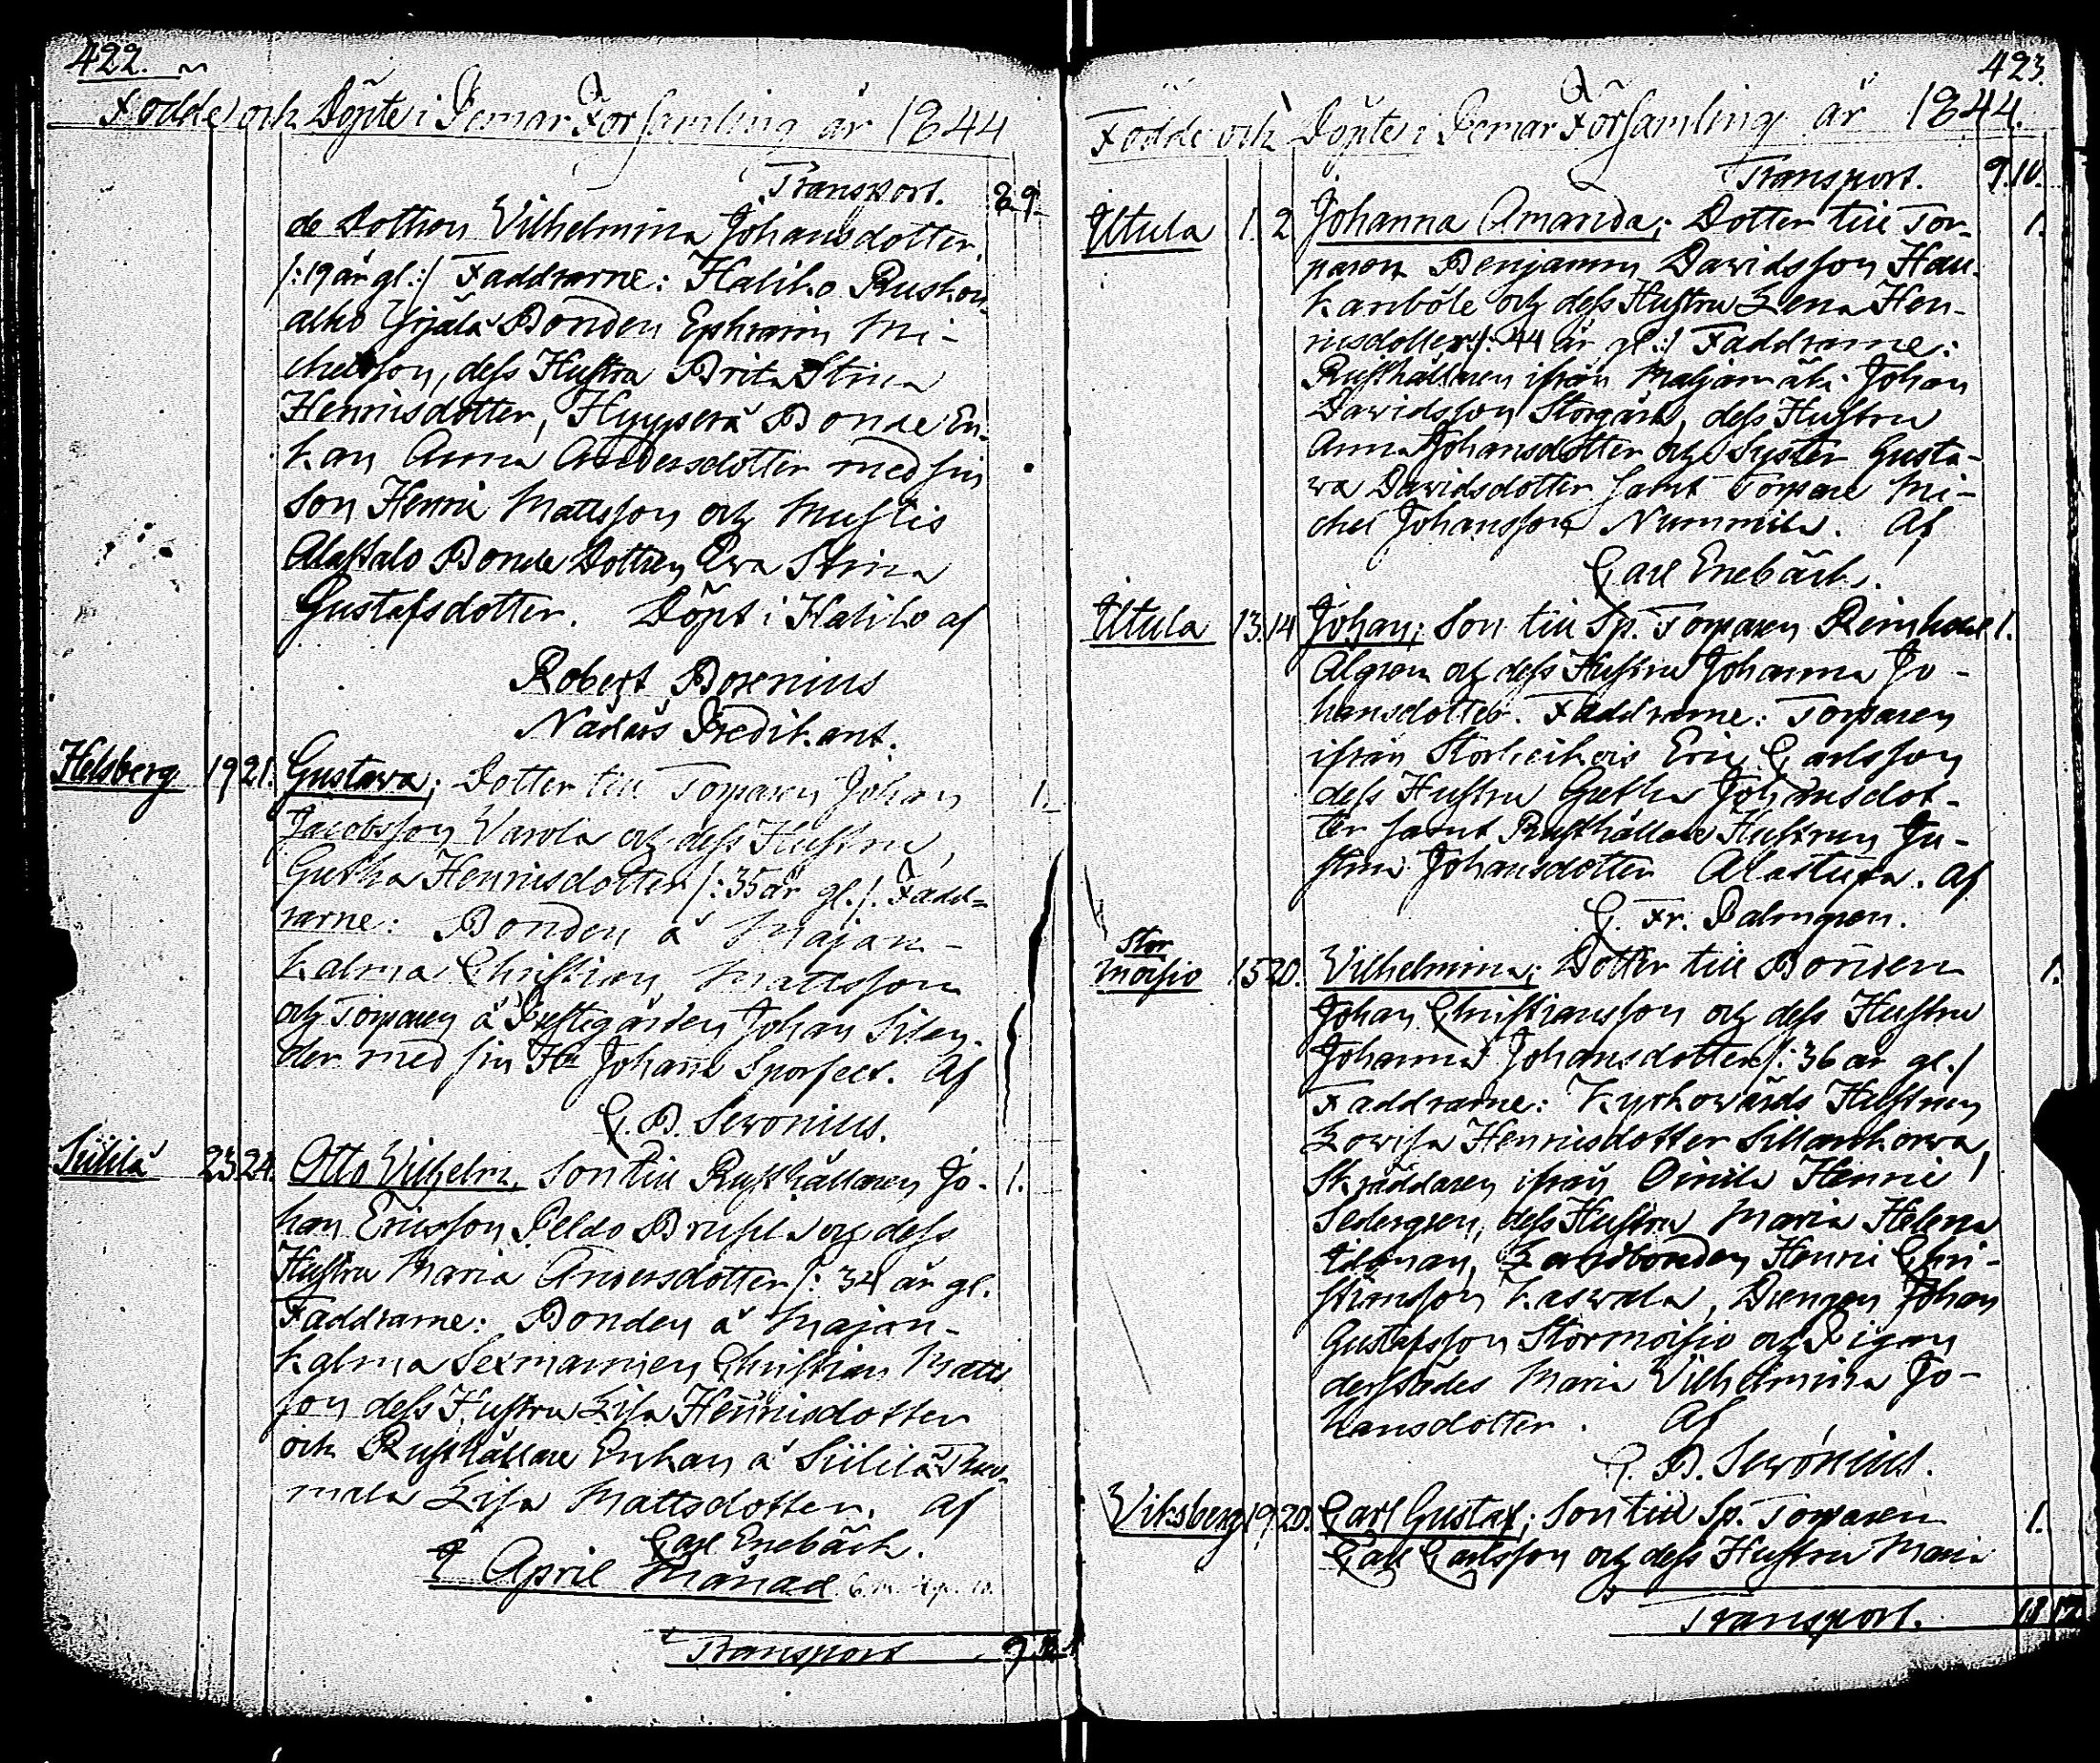 422.
Födde och Döpte i Pemar Församling år 1844
Transport. 8 9
de Dottron Vilhelmina Johansdotter
/:19 år gl:/ Faddrarne: Haliko Ruskon
alho Yrjälä Bonden Ephraim Mi-
chelsson, dess Hustru Brita Stina
Henricsdotter, Hyyperä Bonde En-
kan Anna Andersdotter med sin
Son Henric Mattsson och Mustis
Alastalo Bonde Dottren Eva Stina
Gustafsdotter. Döpt i Haliko af
Robert Borenius
Nådårs Predikant.
Helsberg 19 21. Gustava; Dotter till Torparen Johan 1.
Jacobsson Varola och dess Hustru,
Gretha Henricsdotter /:35 år gl./. Fadd=
rarne: Bonden å Majan-
kalma Christian Mattsson
och Torparen å Prestegården Johan Silen-
der med sin Hu Johanna Sporfelt. Af
G. B. Seronius.
Siililä 23 24. Otto Vilhelm, Son till Rusthållaren Jo- 1.
han Ericsson Peldo Brusila och dess
Hustru Maria Andersdotter /: 34 år gl.
Faddrarne: Bonden å Majan-
kalma Sexmannen Christian Matts
son dess Hustru Lisa Henricsdotter
och Rusthållare Enkan å Siililä
mala Lisa Mattsdotter. Af
Carl Enebäck.
I April Månad
Transport 9 10
423.
Födde och Döpte i Pemar Församling år 1844.
Transport. 9. 10.
Iltula 1. 2. Johanna Amanda; Dotter till Tor- 1.
paren Benjamin Davidsson Hau-
kanböle och dess Hustru Lena Hen-
ricsdotter /: 44 år gl:/ Faddrarne:
Rusthållaren ifrån Maljamäki Johan
Davidsson Storgård, dess Hustru
Anna Johansdotter och Syster Gusta-
va Davidsdotter samt Torpare Mi-
chel Johansson Nummila. Af
Carl Enebäck.
Iltula 13. 14 Johan; Son till Sp. Torparen Reinhold 1.
Algren och dess Hustru Johanna Jo-
hansdotter. Faddrarne: Torparen
ifrån Storheikois Eric Carlsson
dess Hustru Gretha Johansdot-
ter samt Rusthållare Hustrun Ju-
stina Johansdotter Alastupa. Af
G. Fr. Palmgren.
Stor
Moisio 15 20. Vilhelmina; Dotter till Bonden 1.
Johan Christiansson och dess Hustru
Johanna Johansdotter /: 36 år gl./
Faddrarne: Kyrkovärds Hustrun
Lowisa Henricsdotter Sillankorva,
Skräddaren ifrån Oinila Henric
Sedergren, dess Hustru Maria Helena
Tilman, Landbonden Henric Chri-
stiansson Kaswala, Drengen Johan
Gustafsson Stormoisio och Pigan
derstädes Maria Vilhelmina Jo-
hansdotter. Af
G. B. Seronius.
Viksberg 19 20. Carl Gustaf; Son till Sp. Torparen 1.
Carl Carlsson och dess Hustru Maria
Transport.